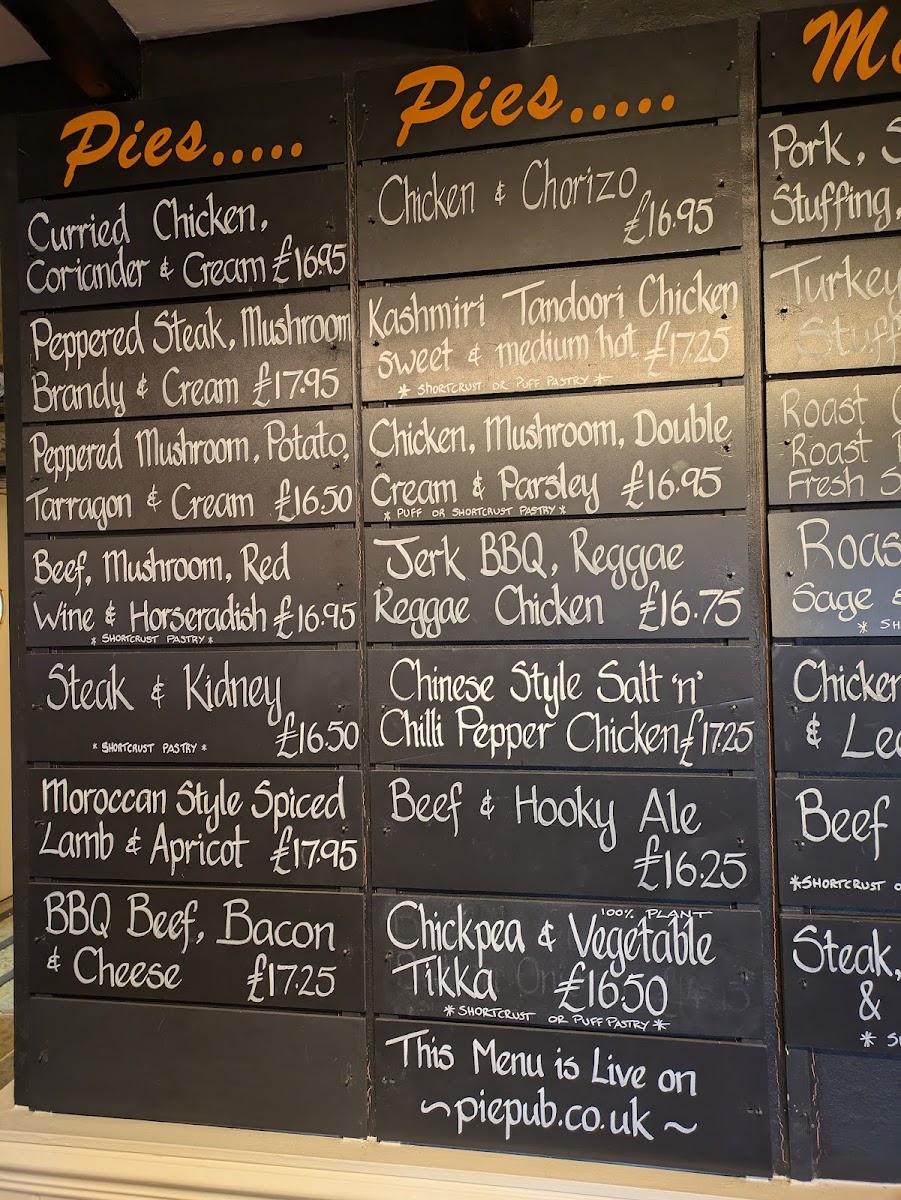 Pies.....
Curried Chicken,
Coriander & Cream £16.95
Peppered Steak, Mushroom
Brandy & Cream £17.95
Peppered Mushroom, Potato,
Tarragon & Cream £16.50
Beef, Mushroom, Red
Wine & Horseradish £16.95
* SHORTCRUST PASTRY *
Steak & Kidney
£16.50
* SHORTCRUST PASTRY *
Moroccan Style Spiced
Lamb & Apricot £17.95
BBQ Beef, Bacon
& Cheese £17.25
Pies.....
Chicken & Chorizo
£16.95
Kashmiri Tandoori Chicken
sweet & medium hot £17.25
* SHORTCRUST OR PUFF PASTRY *
Chicken, Mushroom, Double
Cream & Parsley £16.95
* PUFF OR SHORTCRUST PASTRY *
Jerk BBQ, Reggae
Reggae Chicken £16.75
Chinese Style Salt 'n'
Chilli Pepper Chicken £17.25
Beef & Hooky Ale
£16.25
100% PLANT
Chickpea & Vegetable
Tikka £16.50
* SHORTCRUST OR PUFF PASTRY *
This Menu is Live on
~piepub.co.uk~
Pork,
Stuffing,
Turkey
Roast
Roast
Fresh
Sage &
Chicken
&
Beef
*SHORTCRUST
Steak,
&